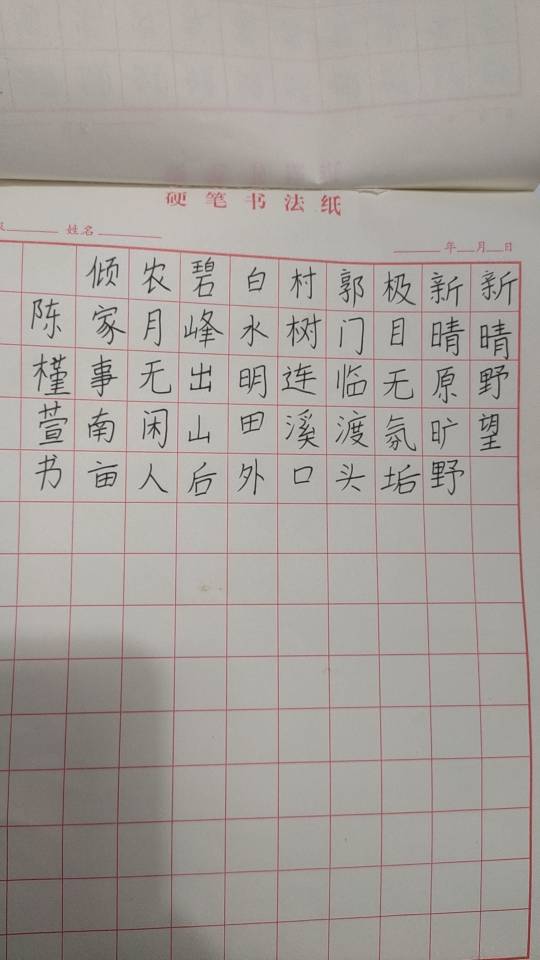 硬笔书法纸
姓名
年 月 日
新晴野望
新晴原旷野
极目无氛垢
郭门临渡头
村树连溪口
白水明田外
碧峰出山后
农月无闲人
倾家事南亩
陈槿萱书